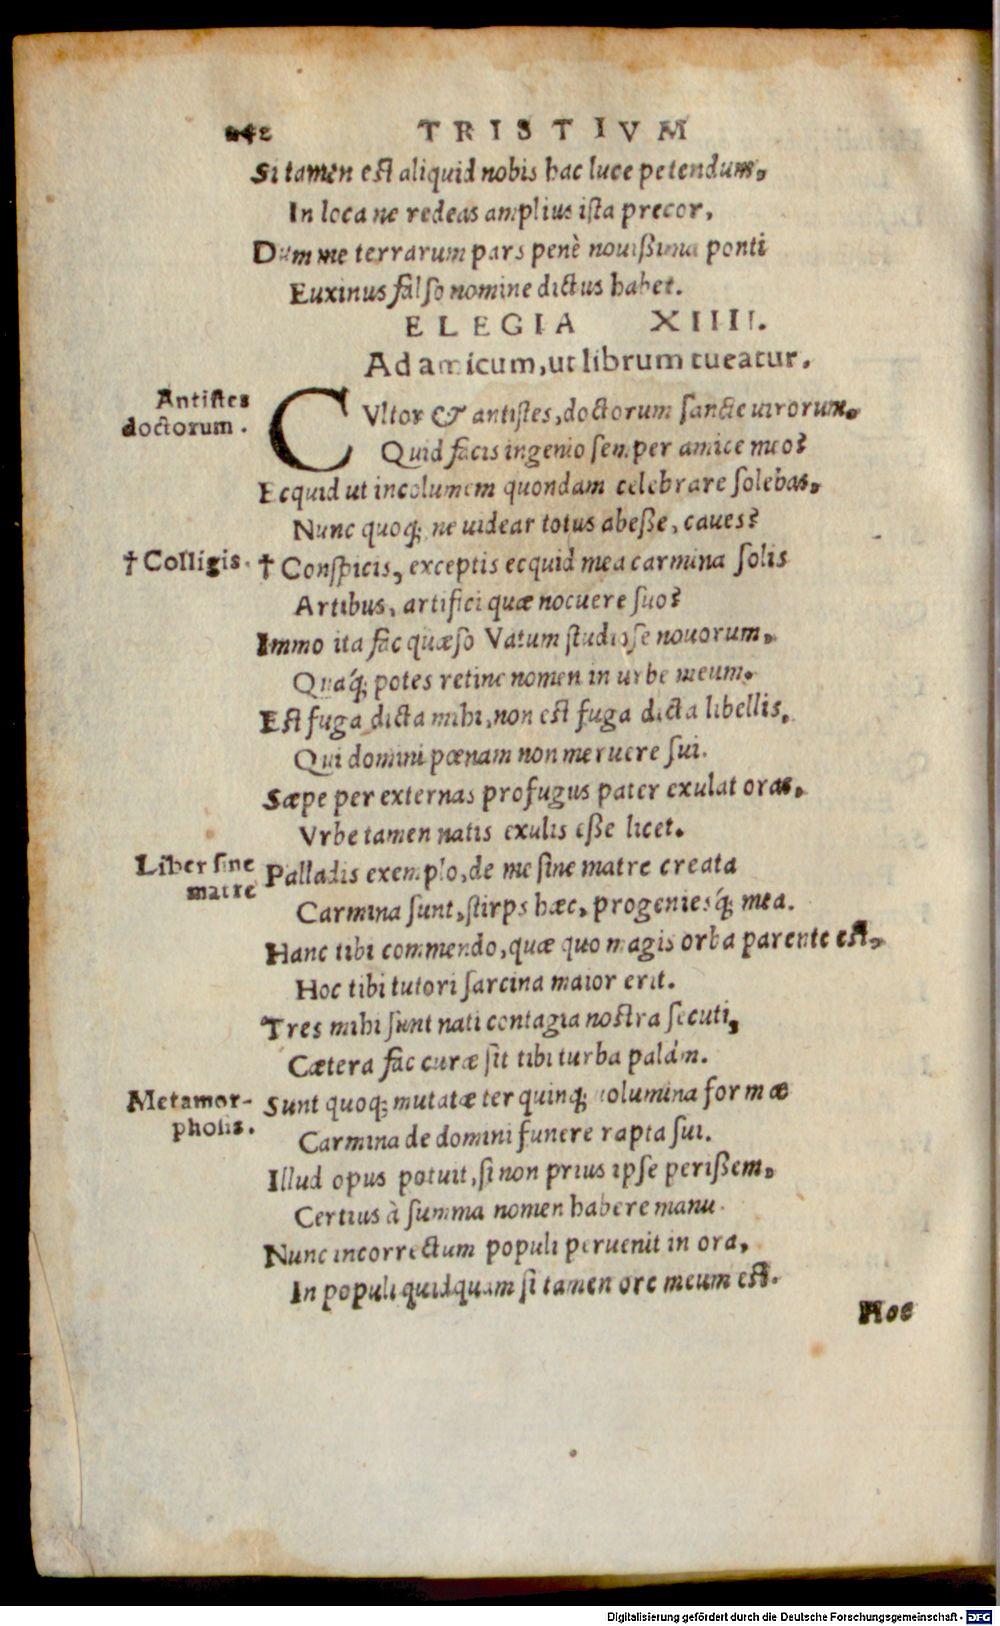 242 TRISTIVM
Si tamen est aliquid nobis hac luce petendum,
In loca ne redeas amplius ista precor,
Dum me terrarum pars penè nouißima ponti
Euxinus falso nomine dictus habet.
ELEGIA XIIII.
Ad amicum, ut librum tueatur.
Antistes
doctorum.
CVltor & antistes, doctorum sancte uirorum,
Quid facis ingenio semper amice meo?
Ecquid ut incolumem quondam celebrare solebas,
Nunc quoq; ne uidear totus abeße, caues?
† Colligis. † Conspicis, exceptis ecquid mea carmina solis
Artibus, artifici quæ nocuere suo?
Immo ita fac quæso Vatum studiose nouorum,
Quáq; potes retine nomen in urbe meum.
Est fuga dicta mihi, non est fuga dicta libellis,
Qui domini pœnam non meruere sui.
Sæpe per externas profugus pater exulat oras,
Vrbe tamen natis exulis eße licet.
Liber sine
matre
Palladis exemplo, de me sine matre creata
Carmina sunt, stirps hæc, progeniesq́; mea.
Hanc tibi commendo, quæ quo magis orba parente est,
Hoc tibi tutori sarcina maior erit.
Tres mihi sunt nati contagia nostra secuti,
Cætera fac curæ sit tibi turba palám.
Metamor-
phosis.
Sunt quoq; mutatæ ter quinq; uolumina formæ
Carmina de domini funere rapta sui.
Illud opus potuit, si non prius ipse perißem,
Certius à summa nomen habere manu.
Nunc incorrectum populi peruenit in ora,
In populi quidquam si tamen ore meum est.
Hoc
Digitalisierung gefördert durch die Deutsche Forschungsgemeinschaft - DFG